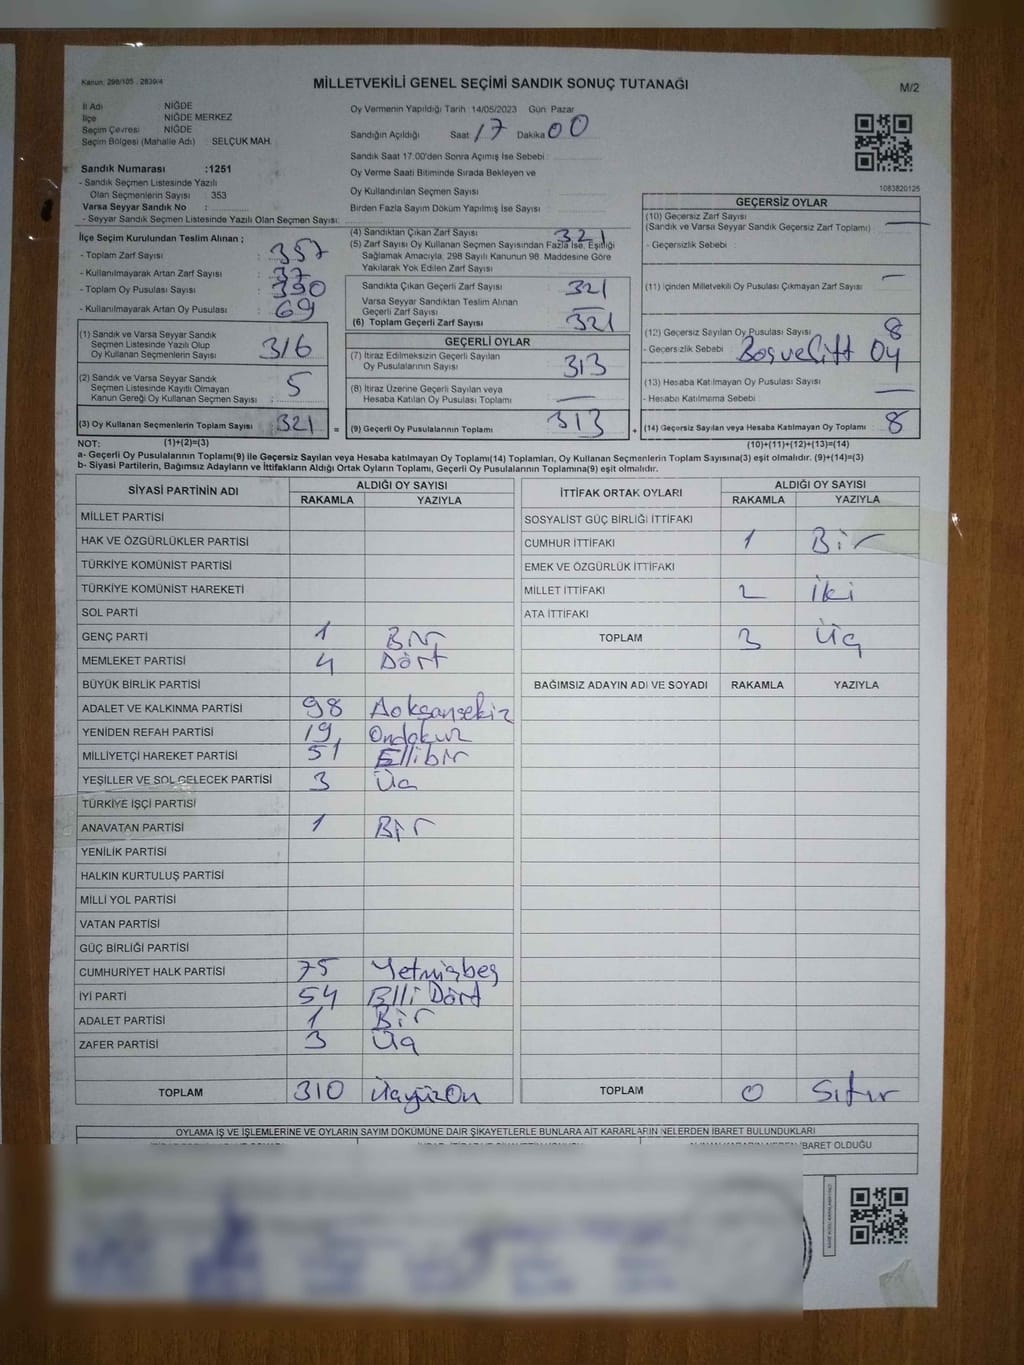 Kanun: 298/105 - 2839/4
MİLLETVEKİLİ GENEL SEÇİMİ SANDIK SONUÇ TUTANAĞI
M/2
İl Adı NİĞDE
İlçe NİĞDE MERKEZ
Seçim Çevresi NİĞDE
Seçim Bölgesi (Mahalle Adı) SELÇUK MAH.
Oy Vermenin Yapıldığı Tarih 14/05/2023 Gün Pazar
Sandığın Açıldığı Saat 17 Dakika 00
Sandık Saat 17.00'den Sonra Açılmış İse Sebebi
Oy Verme Saati Bitiminde Sırada Bekleyen ve
Oy Kullandırılan Seçmen Sayısı
Birden Fazla Sayım Döküm Yapılmış İse Sayısı
Sandık Numarası :1251
- Sandık Seçmen Listesinde Yazılı
Olan Seçmenlerin Sayısı : 353
Varsa Seyyar Sandık No :
- Seyyar Sandık Seçmen Listesinde Yazılı Olan Seçmen Sayısı:
1083820125
İlçe Seçim Kurulundan Teslim Alınan ;
- Toplam Zarf Sayısı : 357
- Kullanılmayarak Artan Zarf Sayısı : 37
- Toplam Oy Pusulası Sayısı : 390
- Kullanılmayarak Artan Oy Pusulası : 69
(1) Sandık ve Varsa Seyyar Sandık
Seçmen Listesinde Yazılı Olup
Oy Kullanan Seçmenlerin Sayısı 316
(2) Sandık ve Varsa Seyyar Sandık
Seçmen Listesinde Kayıtlı Olmayan
Kanun Gereği Oy Kullanan Seçmen Sayısı : 5
(3) Oy Kullanan Seçmenlerin Toplam Sayısı 321 =
(4) Sandıktan Çıkan Zarf Sayısı 321
(5) Zarf Sayısı Oy Kullanan Seçmen Sayısından Fazla İse, Eşitliği
Sağlamak Amacıyla, 298 Sayılı Kanunun 98. Maddesine Göre
Yakılarak Yok Edilen Zarf Sayısı
Sandıkta Çıkan Geçerli Zarf Sayısı 321
Varsa Seyyar Sandıktan Teslim Alınan
Geçerli Zarf Sayısı —
(6) Toplam Geçerli Zarf Sayısı 321
GEÇERLİ OYLAR
(7) İtiraz Edilmeksizin Geçerli Sayılan
Oy Pusulalarının Sayısı 313
(8) İtiraz Üzerine Geçerli Sayılan veya
Hesaba Katılan Oy Pusulası Toplamı —
(9) Geçerli Oy Pusulalarının Toplamı 313 +
GEÇERSİZ OYLAR
(10) Geçersiz Zarf Sayısı
(Sandık ve Varsa Seyyar Sandık Geçersiz Zarf Toplamı) —
- Geçersizlik Sebebi :
(11) İçinden Milletvekili Oy Pusulası Çıkmayan Zarf Sayısı —
(12) Geçersiz Sayılan Oy Pusulası Sayısı 8
- Geçersizlik Sebebi Boş ve Çift Oy
(13) Hesaba Katılmayan Oy Pusulası Sayısı —
- Hesaba Katılmama Sebebi
(14) Geçersiz Sayılan veya Hesaba Katılmayan Oy Toplamı 8
NOT: (1)+(2)=(3) (10)+(11)+(12)+(13)=(14)
a- Geçerli Oy Pusulalarının Toplamı(9) ile Geçersiz Sayılan veya Hesaba katılmayan Oy Toplamı(14) Toplamları, Oy Kullanan Seçmenlerin Toplam Sayısına(3) eşit olmalıdır. (9)+(14)=(3)
b- Siyasi Partilerin, Bağımsız Adayların ve İttifakların Aldığı Ortak Oyların Toplamı, Geçerli Oy Pusulalarının Toplamına(9) eşit olmalıdır.
SİYASİ PARTİNİN ADI ALDIĞI OY SAYISI
RAKAMLA YAZIYLA
MİLLET PARTİSİ
HAK VE ÖZGÜRLÜKLER PARTİSİ
TÜRKİYE KOMÜNİST PARTİSİ
TÜRKİYE KOMÜNİST HAREKETİ
SOL PARTİ
GENÇ PARTİ 1 Bir
MEMLEKET PARTİSİ 4 Dört
BÜYÜK BİRLİK PARTİSİ
ADALET VE KALKINMA PARTİSİ 98 Doksansekiz
YENİDEN REFAH PARTİSİ 19 Ondokuz
MİLLİYETÇİ HAREKET PARTİSİ 51 Ellibir
YEŞİLLER VE SOL GELECEK PARTİSİ 3 Üç
TÜRKİYE İŞÇİ PARTİSİ
ANAVATAN PARTİSİ 1 Bir
YENİLİK PARTİSİ
HALKIN KURTULUŞ PARTİSİ
MİLLİ YOL PARTİSİ
VATAN PARTİSİ
GÜÇ BİRLİĞİ PARTİSİ
CUMHURİYET HALK PARTİSİ 75 Yetmişbeş
İYİ PARTİ 54 Elli Dört
ADALET PARTİSİ 1 Bir
ZAFER PARTİSİ 3 Üç
TOPLAM 310 ÜçyüzOn
İTTİFAK ORTAK OYLARI ALDIĞI OY SAYISI
RAKAMLA YAZIYLA
SOSYALİST GÜÇ BİRLİĞİ İTTİFAKI
CUMHUR İTTİFAKI 1 Bir
EMEK VE ÖZGÜRLÜK İTTİFAKI
MİLLET İTTİFAKI 2 İki
ATA İTTİFAKI
TOPLAM 3 Üç
BAĞIMSIZ ADAYIN ADI VE SOYADI RAKAMLA YAZIYLA
TOPLAM 0 Sıfır
OYLAMA İŞ VE İŞLEMLERİNE VE OYLARIN SAYIM DÖKÜMÜNE DAİR ŞİKAYETLERLE BUNLARA AİT KARARLARIN NELERDEN İBARET BULUNDUKLARI
İBARET OLDUĞU